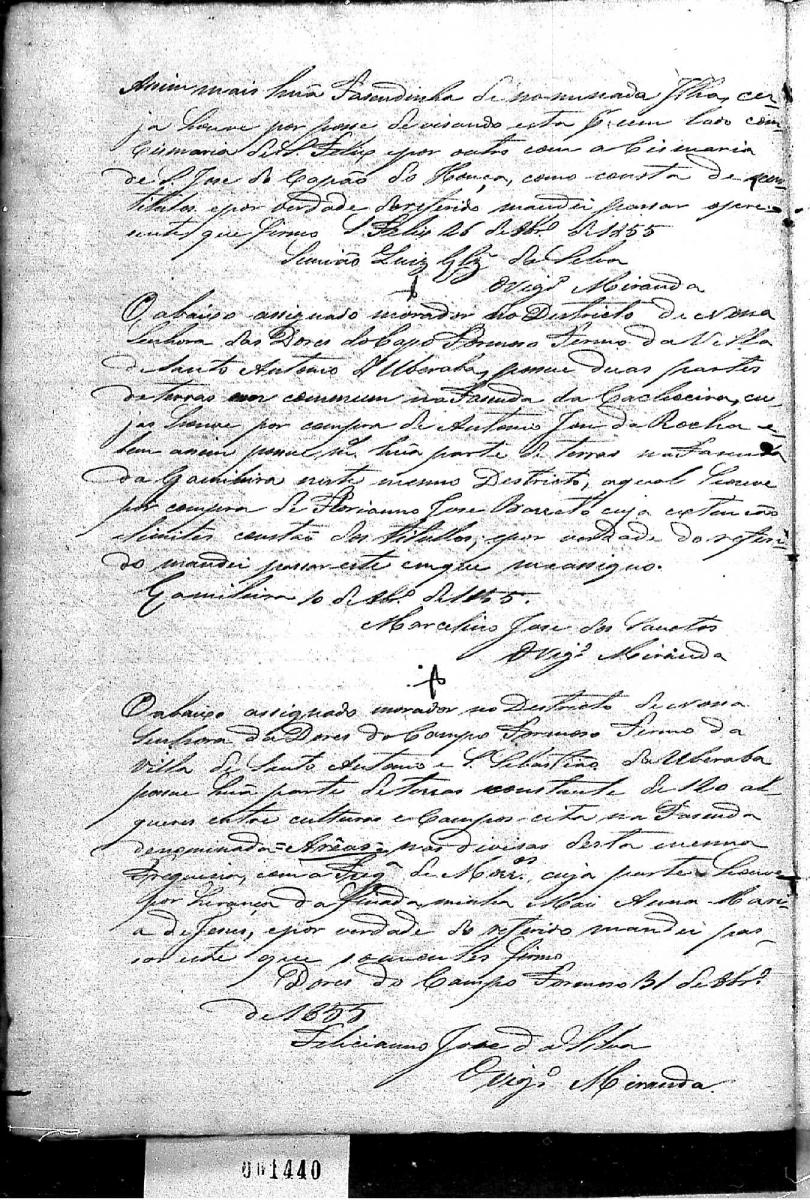 Assim mais huã Fasendinha denominada Ilha, cu-
ja houve por posse devisando esta por um lado com
Cismaria de S. Felix e por outro com a Cismaria
de S. Jose do Capão do , como consta de
titulos, e por verdade do referido mandei passar o pre-
sente que firmo S. Felis 26 de 8br.º de 1855
Luiz Glz' da Silva
O Vigrº Miranda
O abaixo assignado morador no Districto de Nossa
Senhora das Dores do Campo Formoso Termo da Villa
de Santo Antonio d'Uberaba, possue duas partes
de terras em commum na Fasenda da Cachoeira, cu-
jas houve por compra de Antonio Jose da Rocha e
bem assim possue mº huã parte de terras na Fasenda
da Gamileira neste mesmo Districto, a qual houve
por compra de Florianno Jose Barreto cuja extenção
e limites constão dos titullos, e por verdade do referi-
do mandei passar este em que me assigno.
Gamileira 10 de 8br.º de 1855.
Marcelino Jose dos Santos
O Vigrº Miranda
O abaixo assignado morador no Destricto de Nossa
Senhora da Dores do Campo Formoso Termo da
Villa de Santo Antonio e S. Sebastião do Uberaba
possue huã parte de terras constante de 120 al-
queres entre culturas e Campos cita na Fasenda
denominada = Arêas = nas divisas desta mesma
Freguesia, com a Freg.ª de Morr.ºs cuja parte houve
por herança da finada minha Mai Anna Mari-
a de Jesus, e por verdade do referido mandei pas-
sar este que somentes firmo
Dores do Campo Formoso 31 de 8br.º
de 1855
Felicianno Jose d a Silva
O Vigrº Miranda.
001440